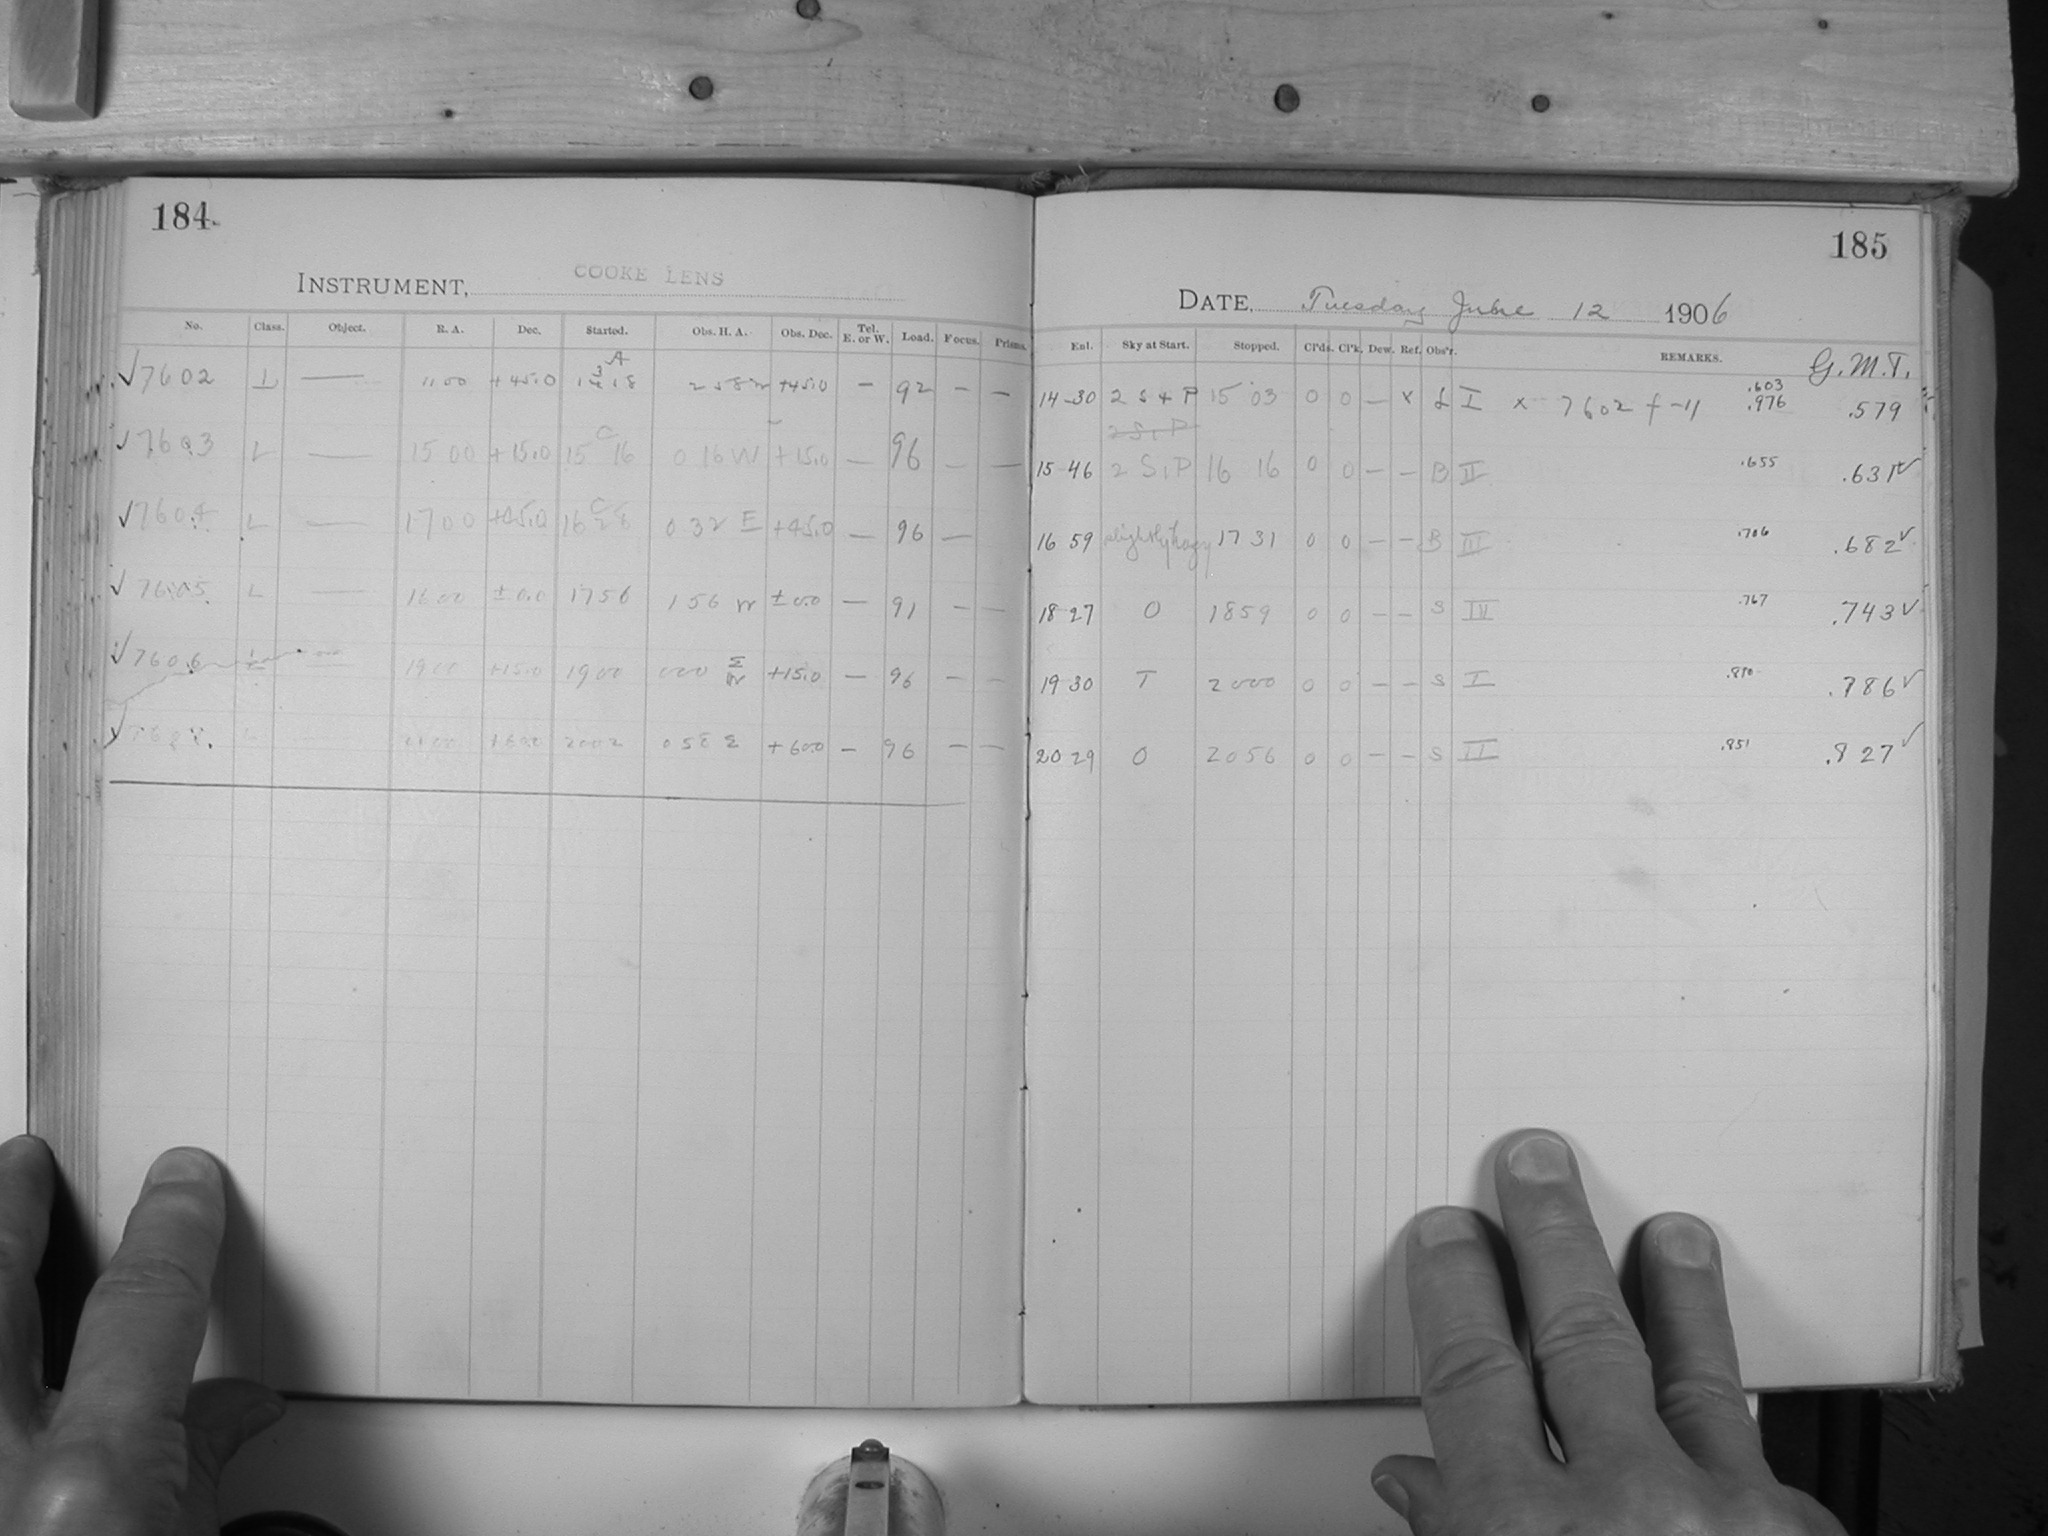 184
INSTRUMENT, COOKE LENS
No. Class. Object. R. A. Dec. Started. Obs. H. A. Obs. Dec. Tel. E. or W. Load. Focus. Prisms.
√7602 L — 11 00 +45.0 A 18 2 58 W +45.0 — 92 — —
√7603 L — 15 00 +15.0 15 C 16 0 16 W +15.0 — 96 — —
√7604 L — 17 00 +45.0 16 C 28 0 32 E +45.0 — 96 —
√7605 L — 16 00 ±0.0 17 56 1 56 W ±0.0 — 91 — —
√7606 — 19 00 +15.0 19 00 000 E W +15.0 — 96 — —
√ L — +60.0 2002 0 58 E +60.0 — 96 — —
185
DATE, Tuesday June 12 1906
Enl. Sky at Start. Stopped. Cl'ds. Cl'k. Dew. Ref. Obs'r. REMARKS. G.M.T.
14-30 2 S & P 15 03 0 0 — x L I x 7602 f-11 .603 .976 .579
2 S, P
15-46 2 S, P 16 16 0 0 — — B II .655 .631√
16 59 slightly hazy 17 31 0 0 — — B III .706 .682√
18-27 0 1859 0 0 — — S IV .767 .743√
19 30 T 2000 0 0 — — S I .810 .786√
20 29 0 2056 0 0 — — S II .851 .827√